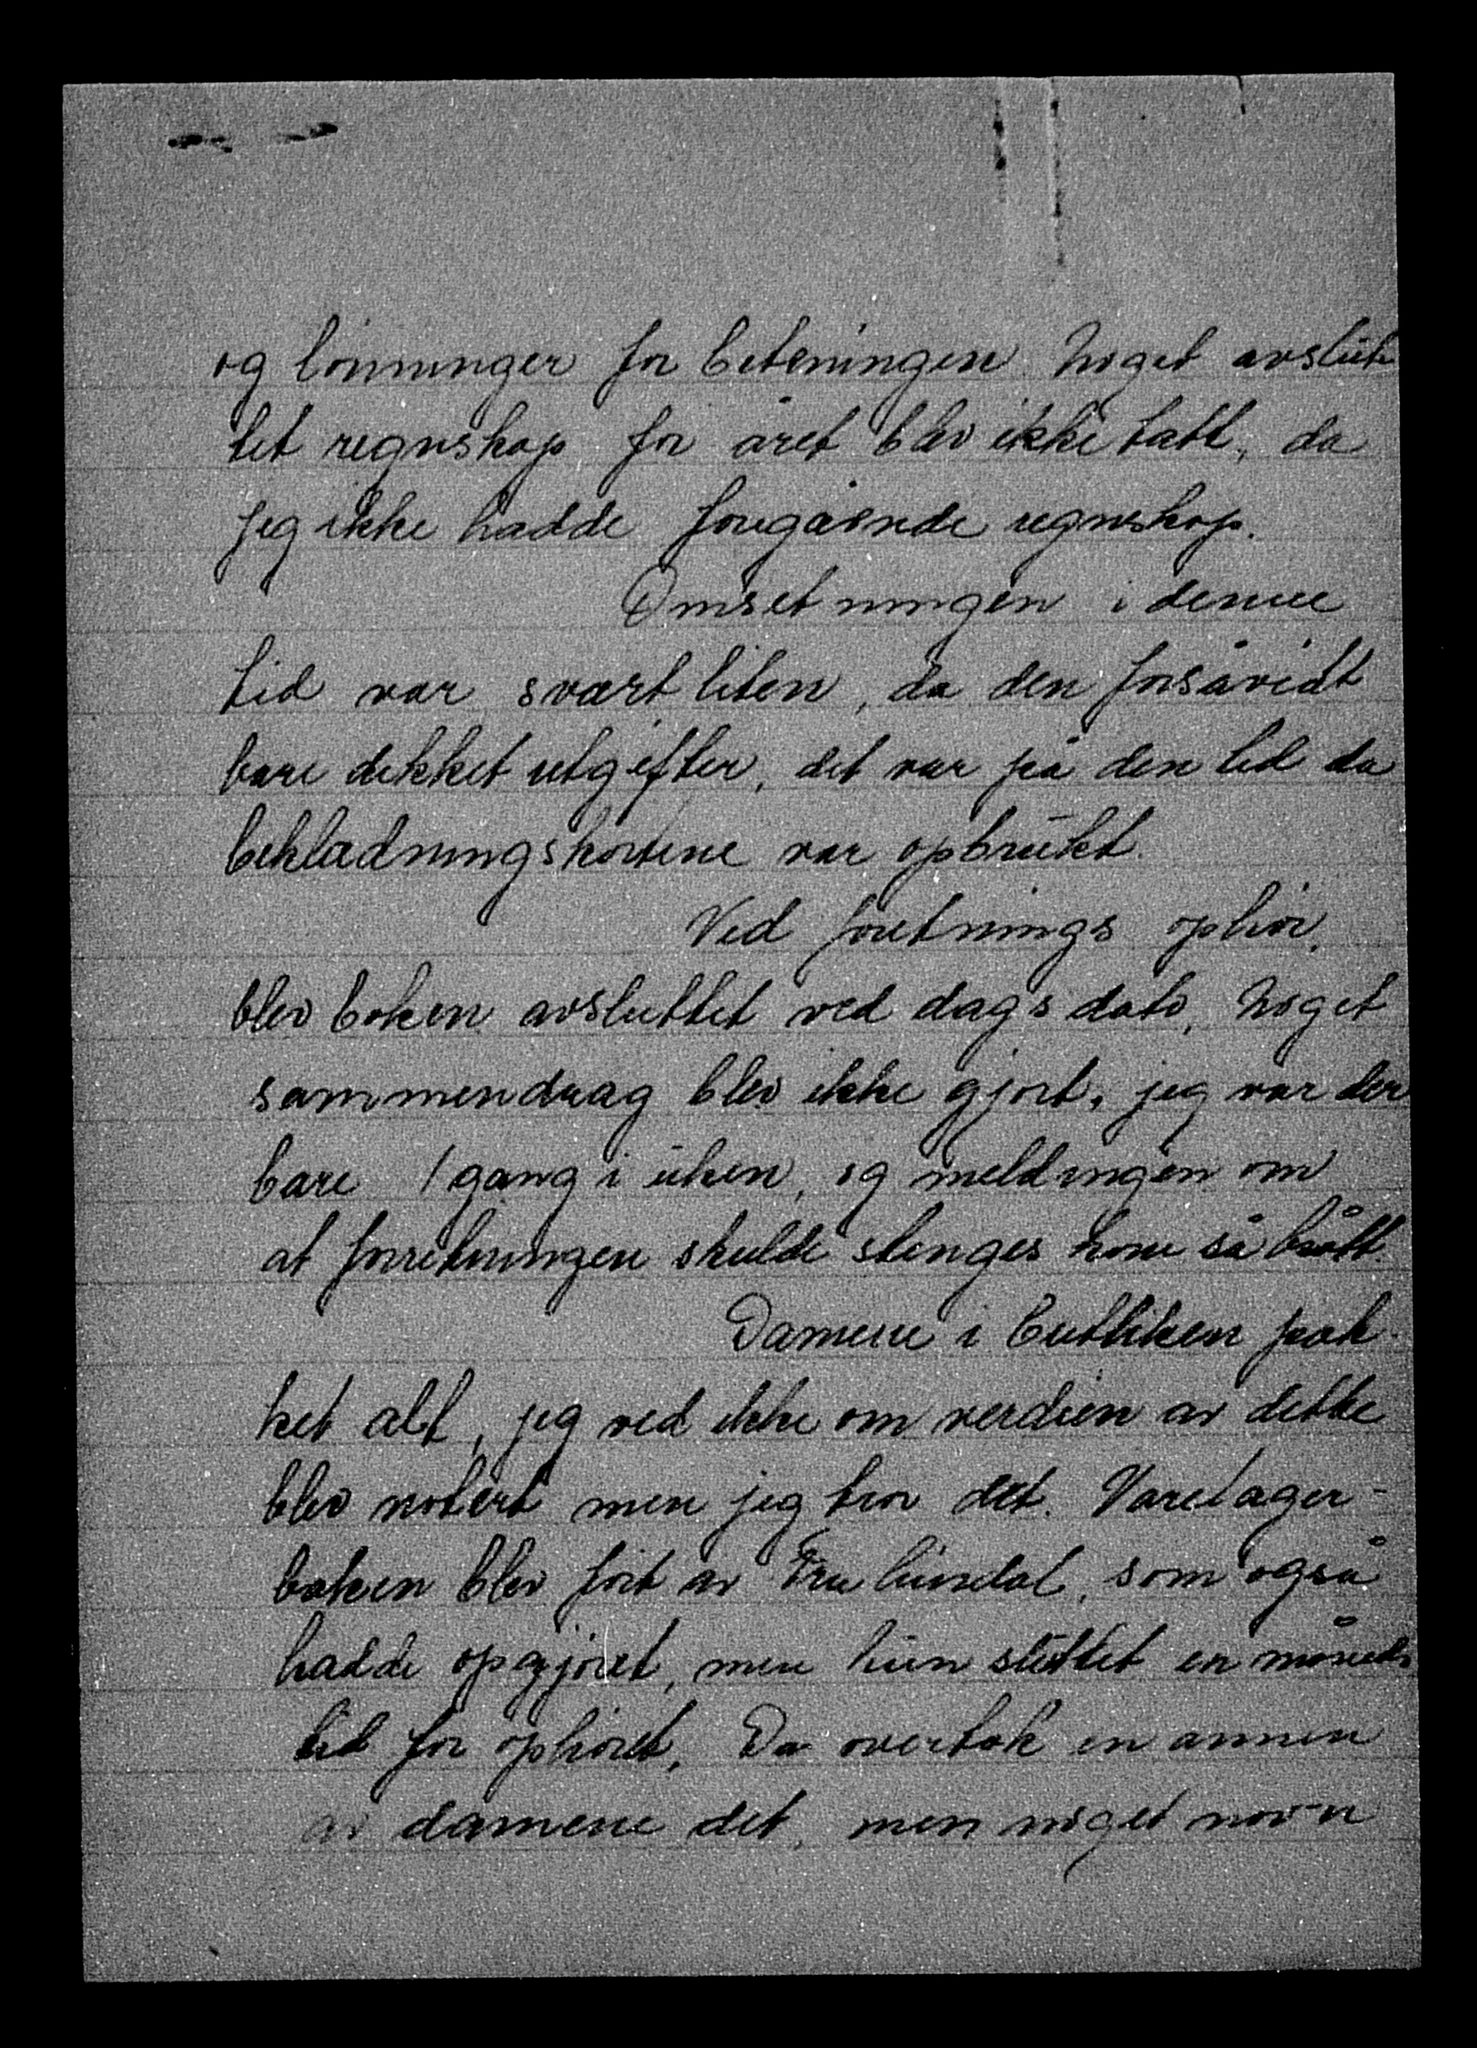 og lönninger for betjeningen. Noget avslut-
tet regnskap for året blev ikke tatt, da
jeg ikke hadde foregående regnskap.
Omsetningen i denne
tid var svært liten, da den forsåvidt
bare dekket utgifter, det var på den tid da
bekladningskortene var opbrukt.
Ved foretnings ophör,
blev boken avsluttet ved dags dato, noget
sammendrag blev ikke gjort, jeg var der
bare 1 gang i uken, og meldingen om
at forretningen skulde stenges kom så brått.
Damene i buttiken pak-
ket alt, jeg ved ikke om verdien av dette
blev notert men jeg tror det. Varelager-
boken blev fört av Fru Lindal, som også
hadde opgjöret, men hun sluttet en måneds
tid for ophöret, Da overtok en annen
av damene det, men noget navn